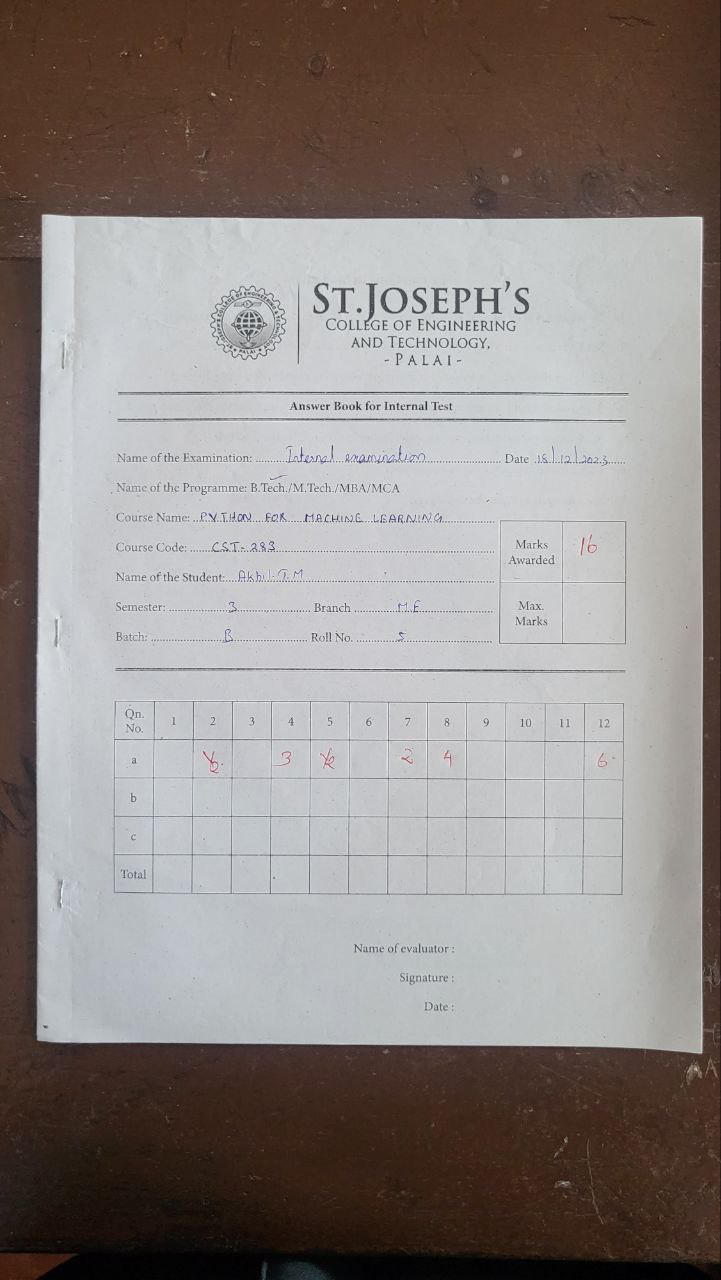 ST.JOSEPH'S
COLLEGE OF ENGINEERING
AND TECHNOLOGY,
- PALAI -
Answer Book for Internal Test
Name of the Examination: Internal examination Date 18/12/2023
Name of the Programme: B.Tech./M.Tech./MBA/MCA
Course Name: PYTHON FOR MACHINE LEARNING
Course Code: CST-283
Marks Awarded 16
Name of the Student: Akhil.T.M
Semester: 3 Branch M.E
Max. Marks
Batch: B Roll No. 5
Qn. No. 1 2 3 4 5 6 7 8 9 10 11 12
a ½ 3 ½ 2 4 6
b
c
Total
Name of evaluator :
Signature :
Date :